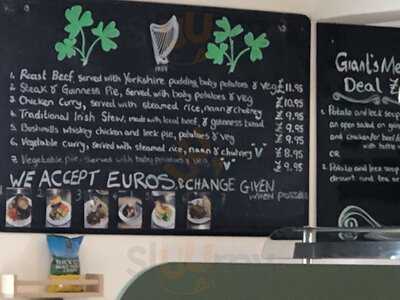 1. Roast Beef, served with Yorkshire pudding, baby potatoes & veg £11.95
2. Steak & Guinness Pie, served with baby potatoes & veg £10.95
3. Chicken Curry, served with steamed rice, naan & chutney £9.95
4. Traditional Irish Stew, made with local beef, & guinness bread £9.95
5. Bushmills whiskey chicken and leek pie, potatoes & veg £9.95
6. Vegetable curry, served with steamed rice, naan & chutney V £8.95
7. Vegetable pie, served with baby potatoes & veg V £9.95
WE ACCEPT EUROS & CHANGE GIVEN
when possible
Giant's Me
Deal £
1. Potato and leek soup
an open salad or
and
OR
2. Potato and leek soup
dessert and tea or